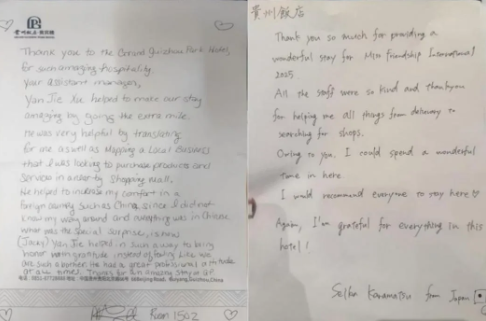 Thank you to the Grand Guizhou Park Hotel
for such amazing hospitality.
Your assistant manager,
Yan Jie Xu helped to make our stay
amazing by going the extra mile.
He was very helpful by translating
for me as well as mapping a local
that I was looking to purchase products and
service in a nearby shopping mall.
He helped to increase my comfort in a
foreign country such as China, since I did not
know my way around and everything was in Chinese.
what was the special surprise,
Yan Jie helped in such a way to bring
honor with gratitude instead of feeling like we
are such a bother. He has a great professional attitude
at all times. Thanks for an amazing stay at GP
Guiyang, Guizhou, China
Room 1502
貴州飯店
Thank you so much for providing a
wonderful stay for Miss friendship International
2025
All the staff were so kind and thankyou
for helping me all things from delivery to
searching for shops.
Owing to you, I could spend a wonderful
time in here
I would recommend everyone to stay here
Again, I'm grateful for everything in this
hotel!
from Japan